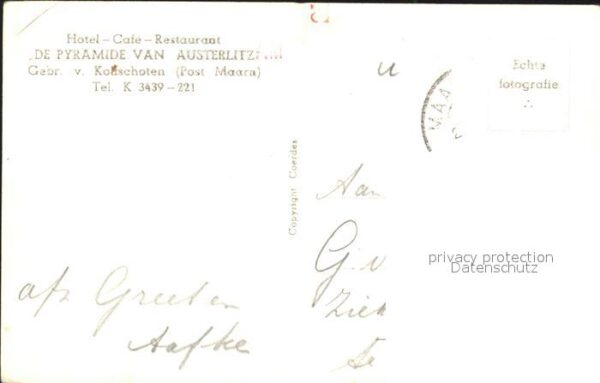 Hotel - Café - Restaurant
„DE PYRAMIDE VAN AUSTERLITZ"
Gebr. v. Kolfschoten (Post Maarn)
Tel. K 3439 - 221
Echte
fotografie
MAA
Copyright Coerdes
Aan
G. v
Ziek
privacy protection
Datenschutz
afz
Aafke